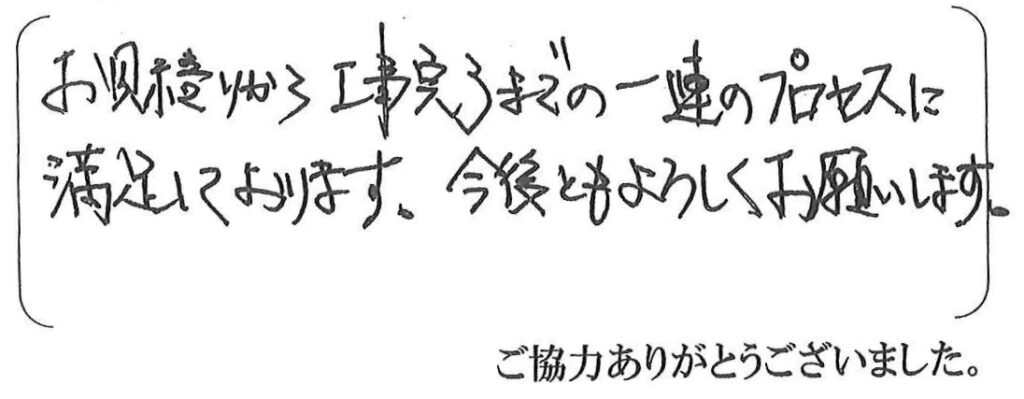 お見積りから工事完了までの一連のプロセスに
満足しております。今後ともよろしくお願いします。
ご協力ありがとうございました。